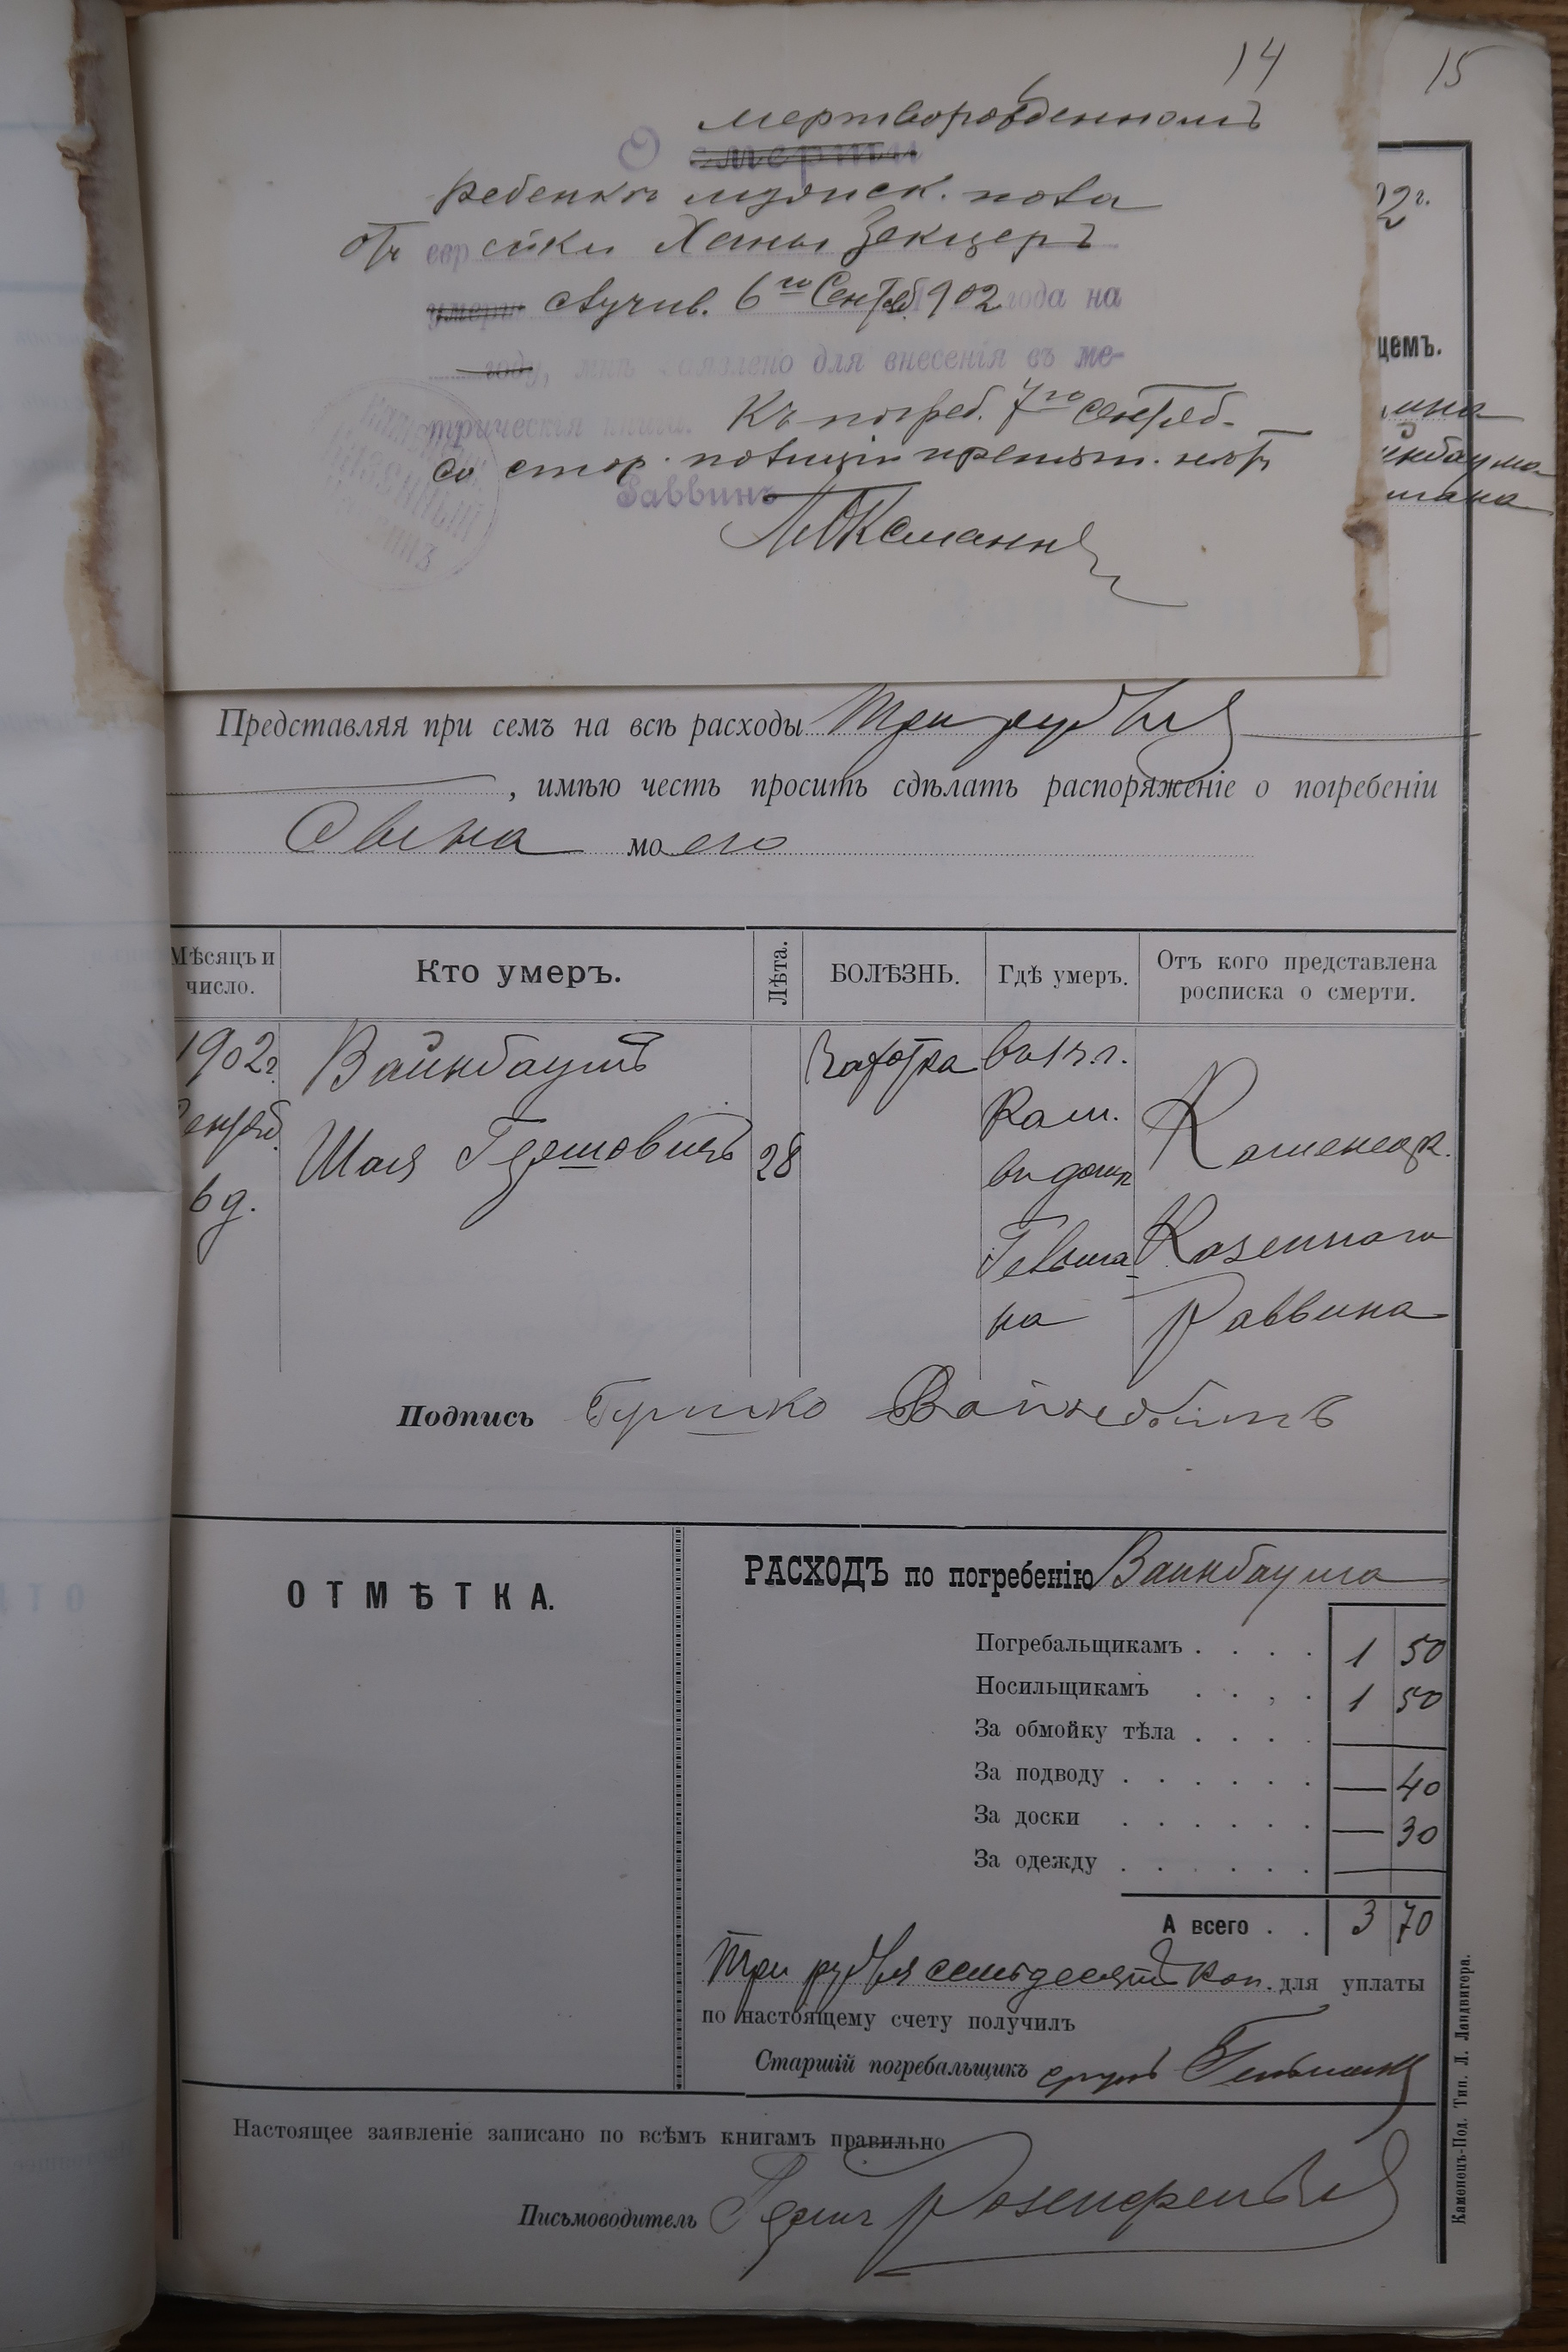 14
15
мертворожденномъ
О смерти
ребенкѣ мужск. пола
отъ еврейки Ханы Зекцеръ
умерш случив. 6го Сентяб. 902 года на
году, мнѣ заявлено для внесенія въ ме-
трическія книги. Къ погреб. 7го Сентяб.
со стор. полиціи препят. нѣтъ
Раввинъ
2г.
щемъ.
Представляя при семъ на всѣ расходы Три рубля
, имѣю честь просить сдѣлать распоряженіе о погребеніи
Сына моего
Мѣсяцъ и число.
Кто умеръ.
Лѣта.
БОЛѢЗНЬ.
Гдѣ умеръ.
Отъ кого представлена
росписка о смерти.
1902г.
Сентяб.
6 д.
Вайнбаумъ
Шая Гершовичъ
28
Чахотка
въ г.
Кам.
въ домѣ
Гельма
на
Каменецк.
Казеннаго
Раввина
Подпись Гершко
ОТМѢТКА.
РАСХОДЪ по погребенію Вайнбаума
Погребальщикамъ . . . . 1 50
Носильщикамъ . . , . 1 50
За обмойку тѣла . . . . —
За подводу . . . . . . — 40
За доски . . . . . . — 30
За одежду . . . . . . —
А всего . . 3 70
Три рубля семьдесятъ коп. для уплаты
по настоящему счету получилъ
Старшій погребальщикъ
Настоящее заявленіе записано по всѣмъ книгамъ правильно
Письмоводитель Розенфельд
Каменецъ-Под. Тип. Л. Ландвигера.